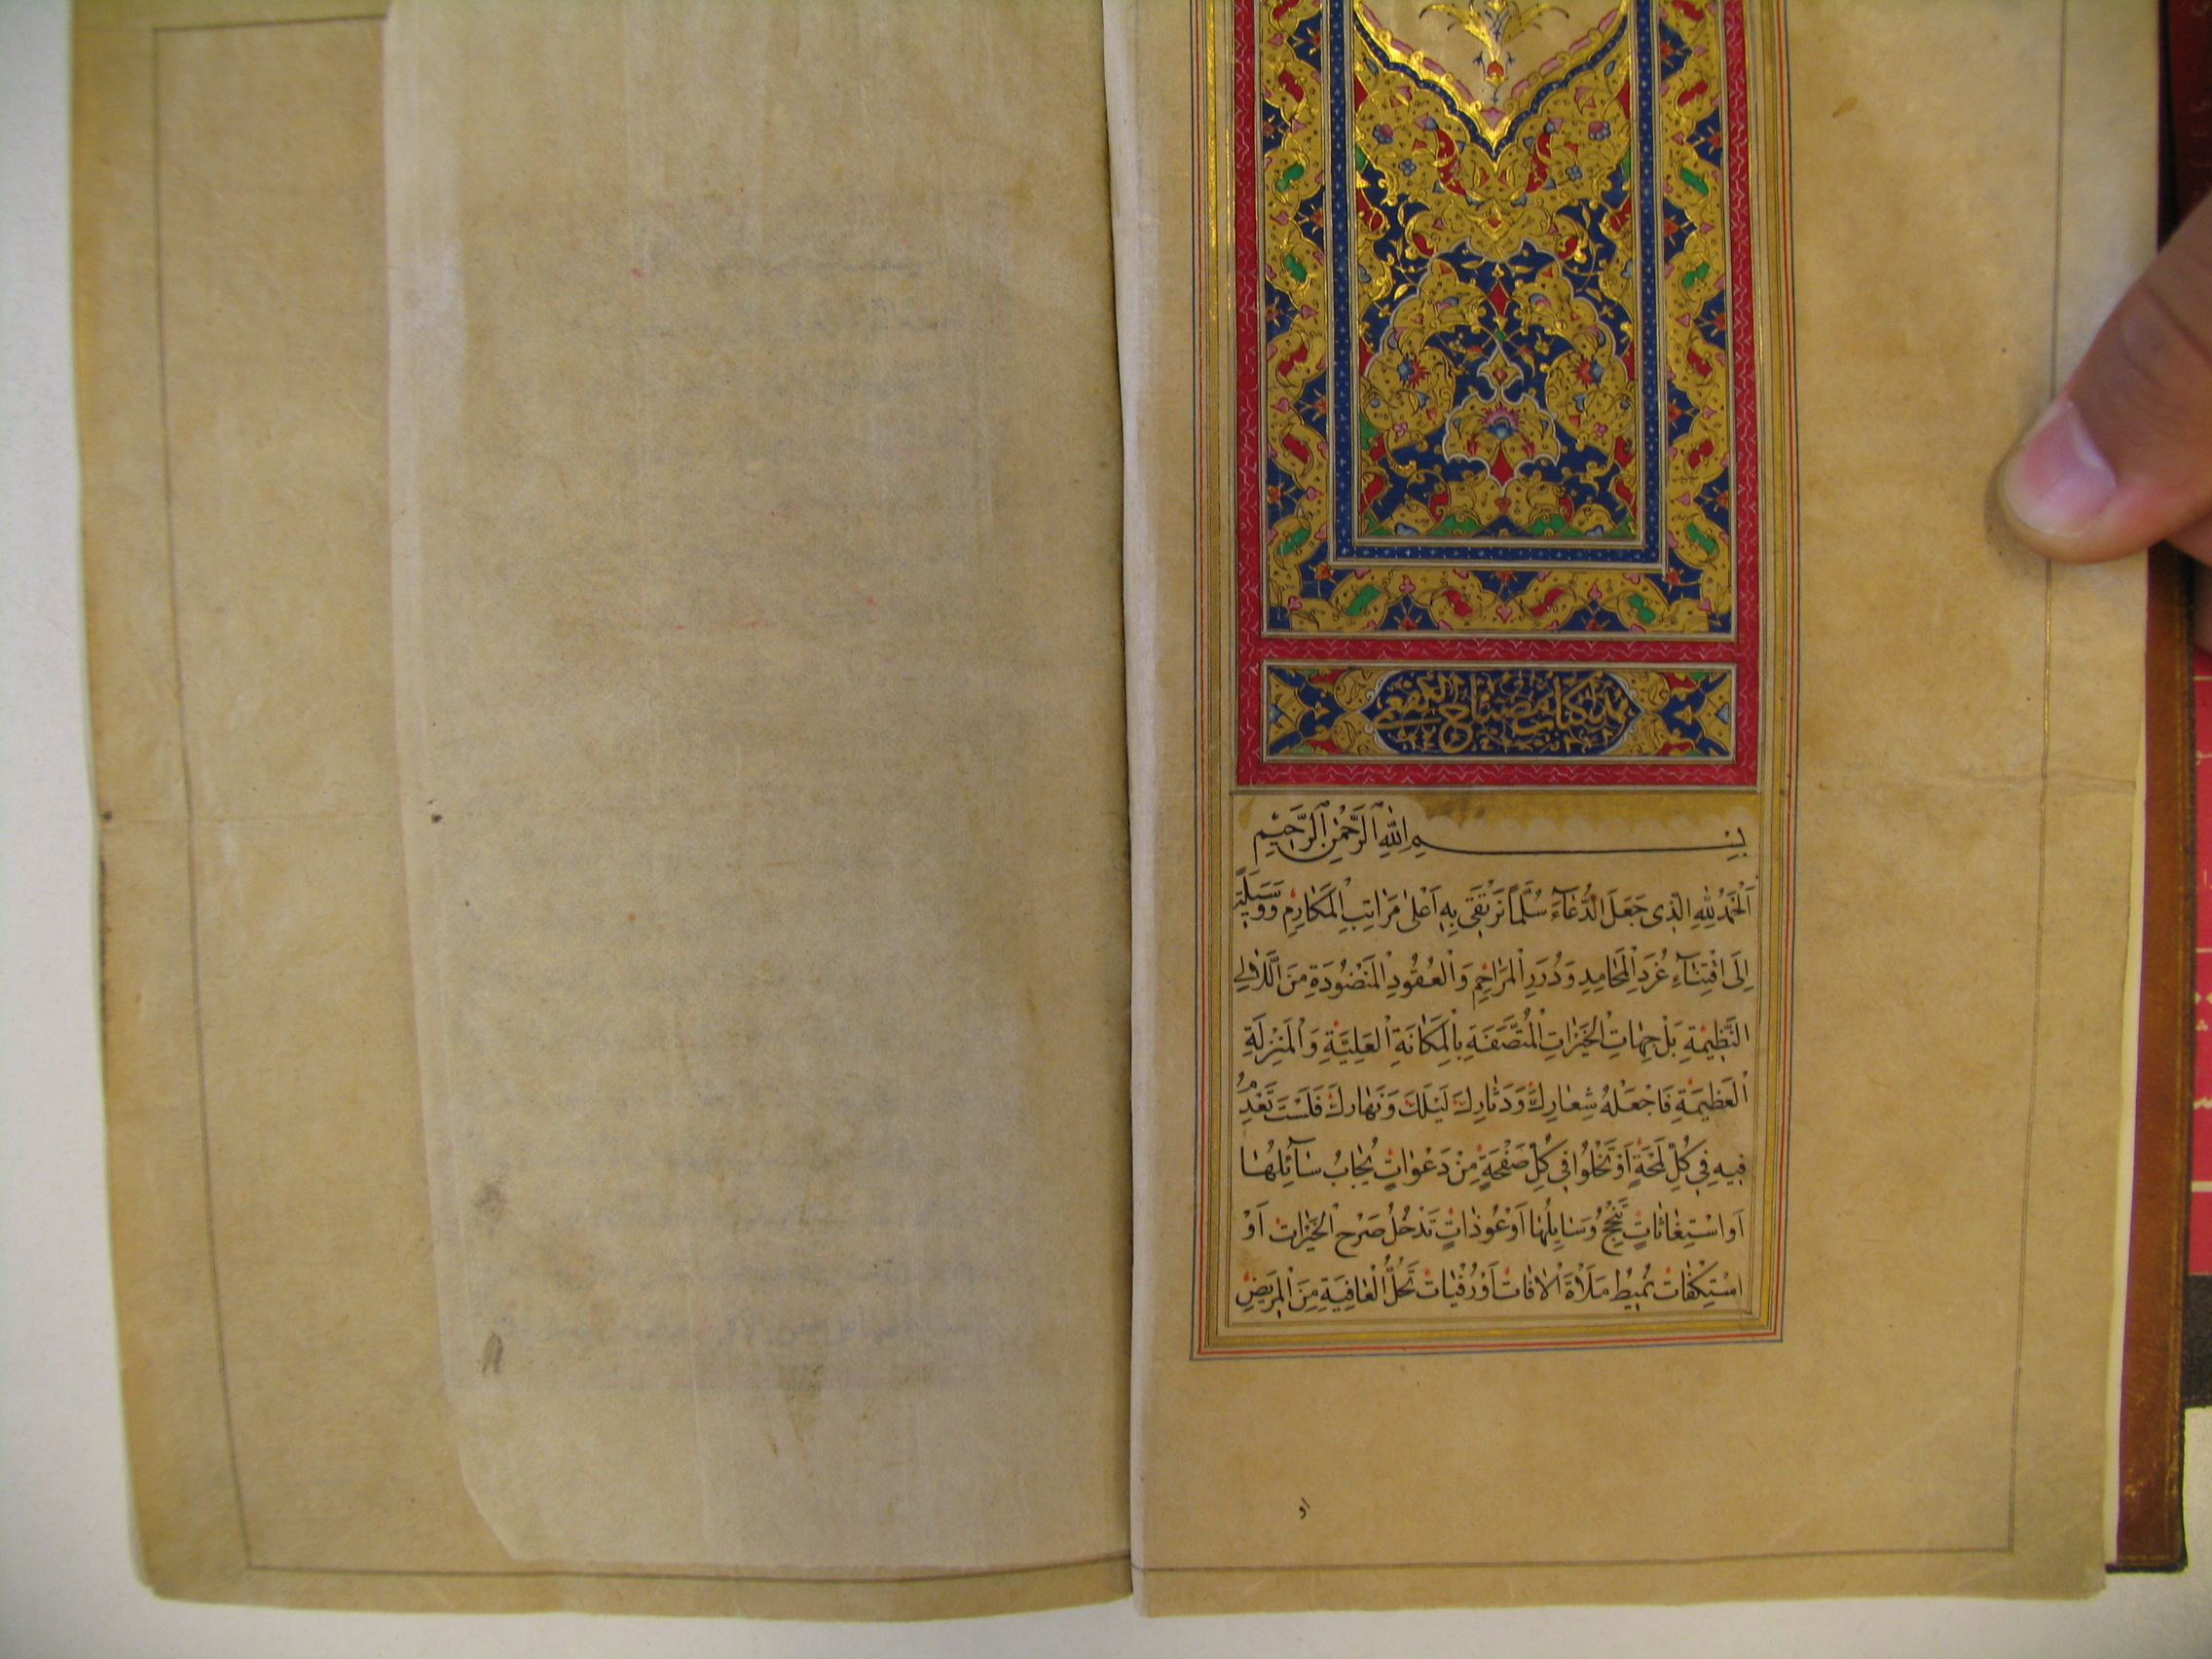 هذا كتاب مصباح الكفعمي
بِسْمِ اللّٰهِ الرَّحْمٰنِ الرَّحِيمِ
اَلْحَمْدُ لِلّٰهِ الَّذِى جَعَلَ الدُّعَاءَ سُلَّماً نَرْتَقِى بِهِ اَعْلىٰ مَرَاتِبِ الْمَكَارِمِ وَوَسِيلَةً
اِلَى اقْتِنَاءِ غُرَرِ الْمَحَامِدِ وَدُرَرِ الْمَرَاحِمِ وَالْعُقُودِ الْمَنْضُودَةِ مِنَ اللَّئَالِى
النَّظِيمَةِ بَلْ جِهَاتِ الْخَيْرَاتِ الْمُتَّصَفَةِ بِالْمَكَانَةِ الْعَلِيَّةِ وَالْمَنْزِلَةِ
الْعَظِيمَةِ فَاجْعَلْهُ شِعَارِكَ وَدِثَارِكَ لَيْلَكَ وَنَهَارِكَ فَلَسْتَ تَعْدِمُ
فِيهِ فِى كُلِّ لَمْحَةٍ اَوْ تَخْلُوا فِى كُلِّ صَفْحَةٍ مِنْ دَعَوَاتٍ يُجَابُ سَائِلُهَا
اَوِ اسْتِغَاثَاتٍ تُنْجِحُ وَسَايِلُهَا اَوْ عُوذَاتٍ تَدْخُلُ صَرْحَ الْخَيْرَاتِ اَوْ
اسْتِكْفَاتٍ تُمِيطُ مَلَاْةَ الْافَاتِ اَوْ رُقْيَاتٍ تُحِلُّ الْعَافِيَةِ مِنَ الْمَرِيضِ
او